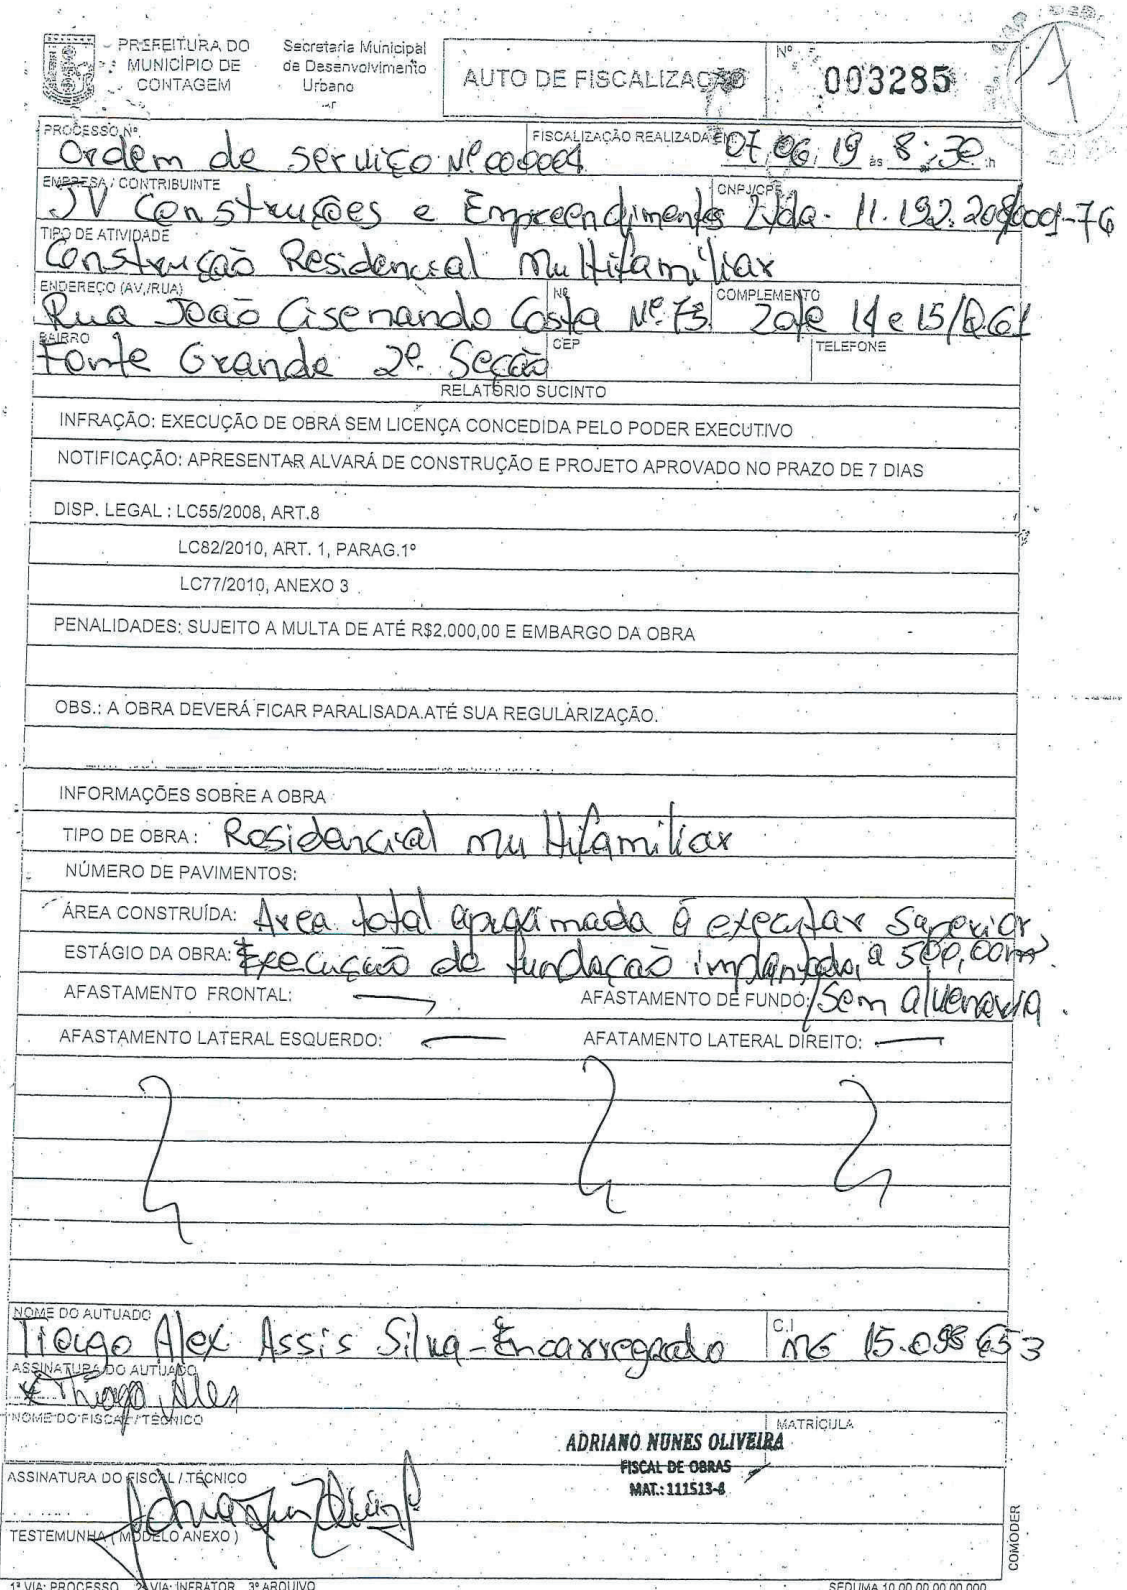 PREFEITURA DO MUNICÍPIO DE CONTAGEM
Secretaria Municipal de Desenvolvimento Urbano
AUTO DE FISCALIZAÇÃO
Nº 003285
1
PROCESSO Nº
Ordem de serviço Nº
FISCALIZAÇÃO REALIZADA EM 07, 06, 19 às 8:30 h
EMPRESA / CONTRIBUINTE
JV Construções e Empreendimentos Ltda.
CNPJ/CPF
11.192.208/0001-76
TIPO DE ATIVIDADE
Construção Residencial Multifamiliar
ENDEREÇO (AV,/RUA)
Rua João Cisenando Costa
Nº
Nº 73.
COMPLEMENTO
Lote 14 e 15/Q.61
BAIRRO
Fonte Grande 2ª Seção
CEP
TELEFONE
RELATÓRIO SUCINTO
INFRAÇÃO: EXECUÇÃO DE OBRA SEM LICENÇA CONCEDIDA PELO PODER EXECUTIVO
NOTIFICAÇÃO: APRESENTAR ALVARÁ DE CONSTRUÇÃO E PROJETO APROVADO NO PRAZO DE 7 DIAS
DISP. LEGAL : LC55/2008, ART.8
LC82/2010, ART. 1, PARAG.1º
LC77/2010, ANEXO 3
PENALIDADES: SUJEITO A MULTA DE ATÉ R$2.000,00 E EMBARGO DA OBRA
OBS.: A OBRA DEVERÁ FICAR PARALISADA ATÉ SUA REGULARIZAÇÃO.
INFORMAÇÕES SOBRE A OBRA
TIPO DE OBRA : Residencial multifamiliar
NÚMERO DE PAVIMENTOS:
ÁREA CONSTRUÍDA: Area total aproximada á executar superior
a 500,00m².
ESTÁGIO DA OBRA: Execução de fundação implantada,
/sem alvenaria.
AFASTAMENTO FRONTAL: —
AFASTAMENTO DE FUNDO:
AFASTAMENTO LATERAL ESQUERDO: —
AFATAMENTO LATERAL DIREITO: —
NOME DO AUTUADO
Tiago Alex Assis Silva - Encarregado
C.I
MG 15.098 653
ASSINATURA DO AUTUADO
x Thiago Alex
NOME DO FISCAL / TÉCNICO
MATRÍCULA
ADRIANO NUNES OLIVEIRA
FISCAL DE OBRAS
MAT.: 111513-6
ASSINATURA DO FISCAL / TÉCNICO
TESTEMUNHA ( MODELO ANEXO )
COMODER
1ª VIA: PROCESSO 2ª VIA: INFRATOR 3ª ARQUIVO
SEDUMA 10.00.00.00.00.000